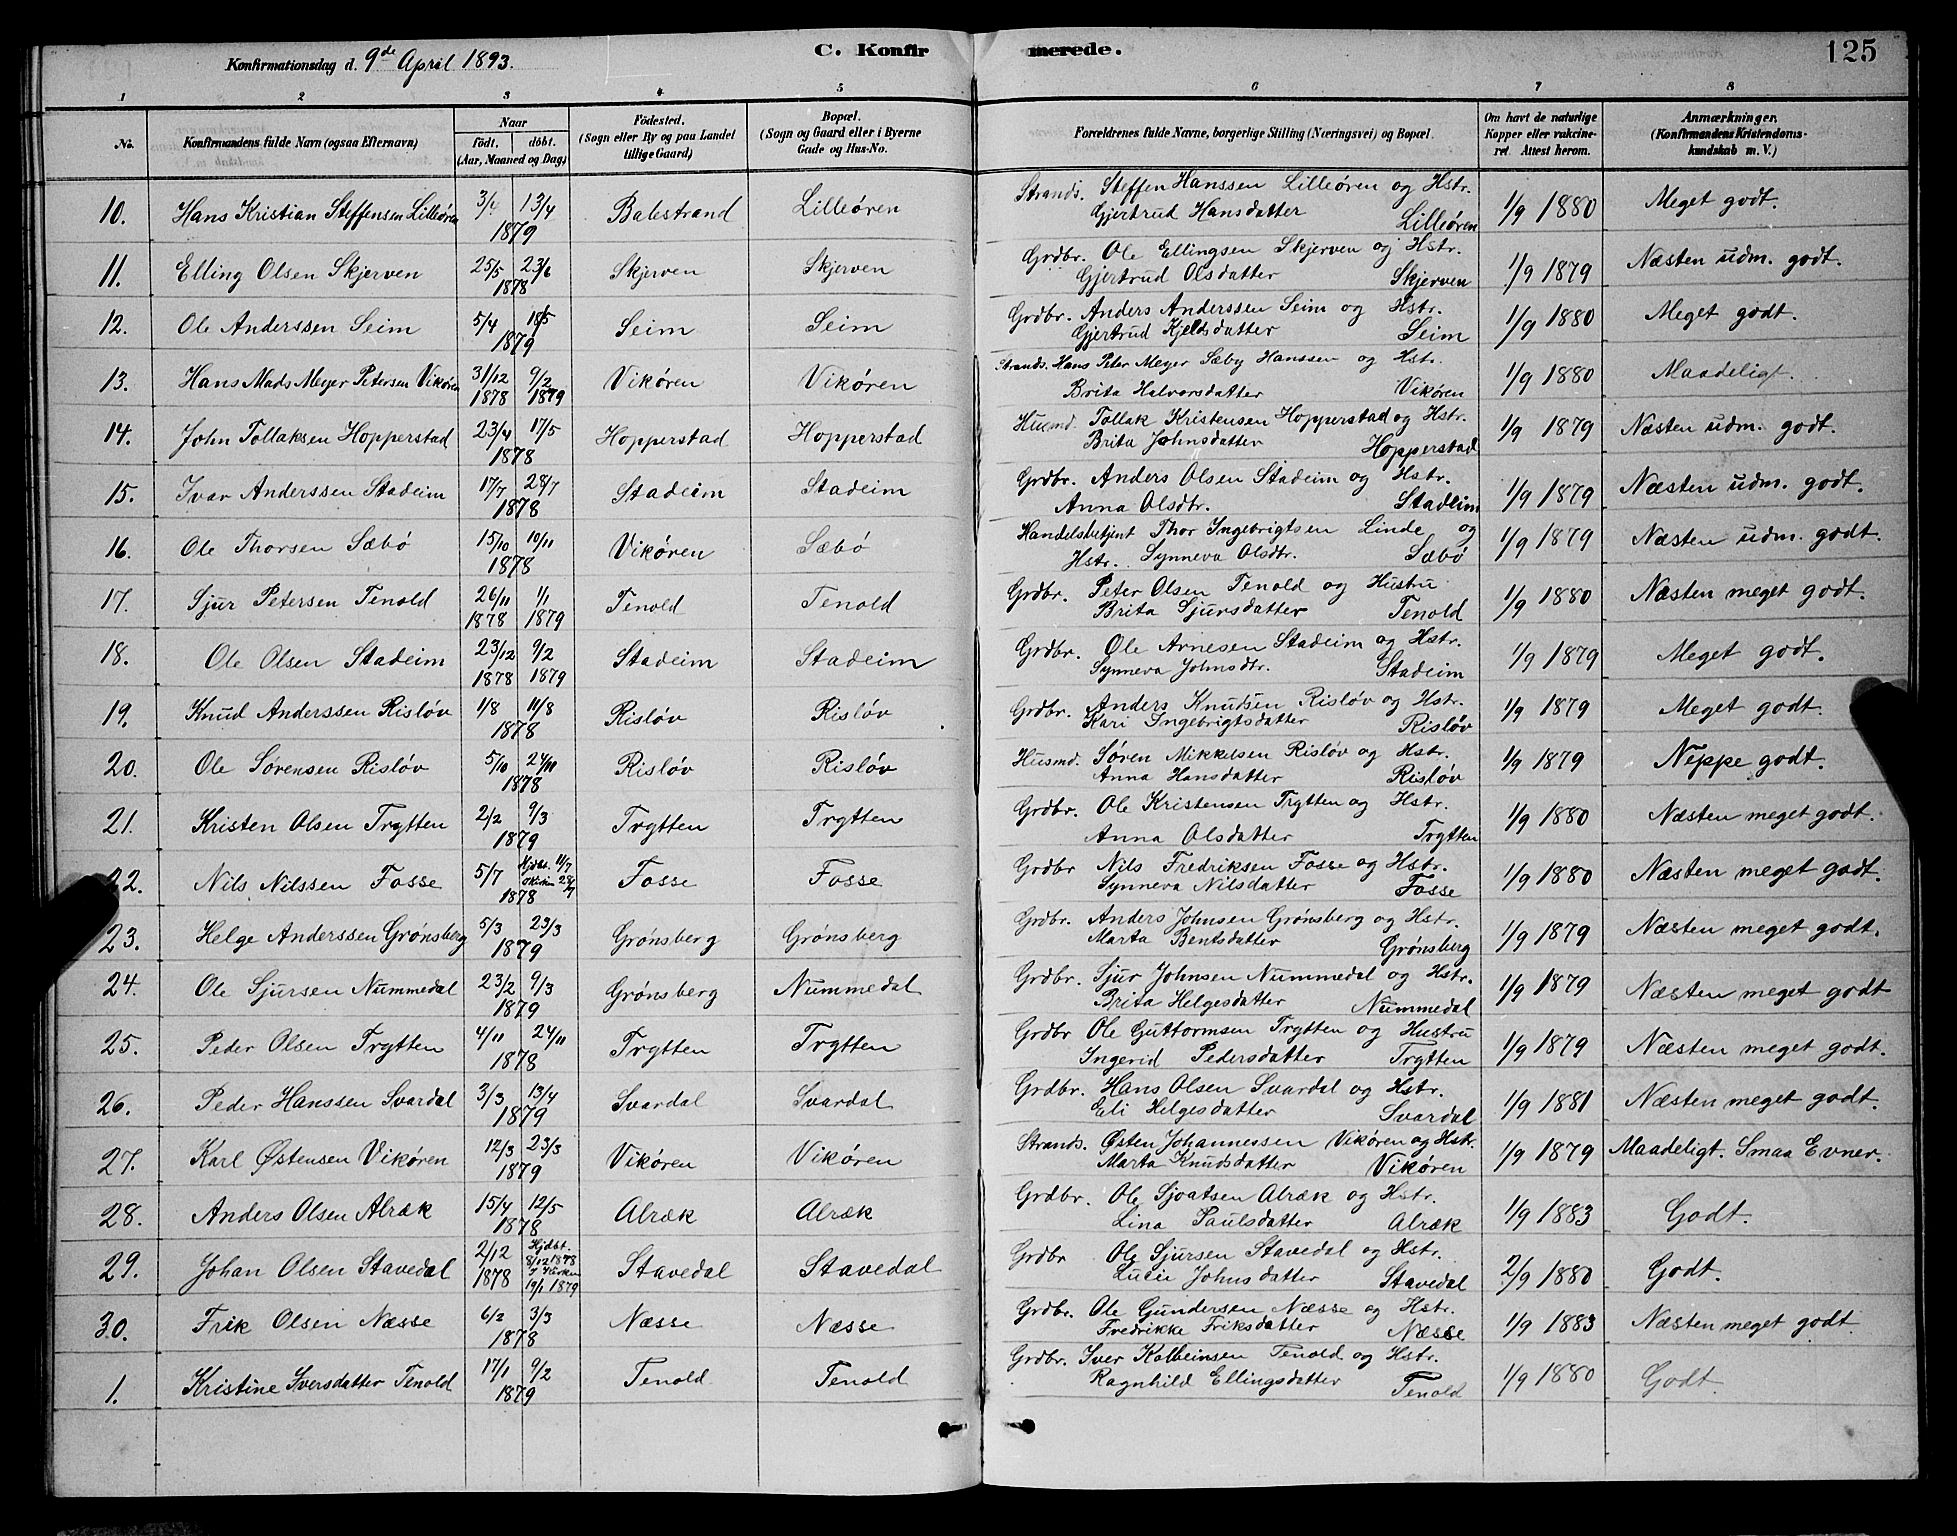 Konfirmationsdag d. 9de April 1893.
C. Konfirmerede.
125
1 2 3 4 5 6 7 8
No. Konfirmandens fulde Navn (ogsaa Efternavn) Naar født. døbt. (Aar, Maaned og Dag) Fødested. (Sogn eller By og paa Landet tillige Gaard) Bopæl. (Sogn og Gaard eller i Byerne Gade og Hus-No. Forældrenes fulde Navne, borgerlige Stilling (Næringsvei) og Bopæl. Om havt de naturlige Kopper eller vakcineret Attest herom. Anmærkninger. (Konfirmandens Kristendomskundskab m. V.)
10. Hans Kristian Steffensen Lilleøren 3/4 13/4 1879 Balestrand Lilleøren Strands. Steffen Hanssen Lilleøren og Hstr. Gjertrud Hansdatter Lilleøren 1/9 1880 Meget godt.
11. Elling Olsen Skjerven 25/5 23/6 1878 Skjerven Skjerven Grdbr. Ole Ellingsen Skjerven og Hstr. Gjertrud Olsdatter Skjerven 1/9 1879 Næsten udm. godt.
12. Ole Anderssen Seim 5/4 18/5 1879 Seim Seim Grdbr. Anders Anderssen Seim og Hstr. Gjertrud Kjeldsdatter Seim 1/9 1880 Meget godt.
13. Hans Mads Meyer Petersen Vikøren 31/12 1878 9/2 1879 Vikøren Vikøren Strands. Hans Peter Meyer Sæby Hanssen og Hstr. Brita Halvorsdatter Vikøren 1/9 1880 Maadeligt.
14. John Tollaksen Hopperstad 23/4 17/5 1878 Hopperstad Hopperstad Husmd. Tollak Kristensen Hopperstad og Hstr. Brita Johnsdatter Hopperstad 1/9 1879 Næsten udm. godt.
15. Ivar Anderssen Stadeim 17/7 28/7 1878 Stadeim Stadeim Grdbr. Anders Olsen Stadeim og Hstr. Anna Olsdtr. Stadeim 1/9 1879 Næsten udm. godt.
16. Ole Thorsen Sæbø 15/10 10/11 1878 Vikøren Sæbø Handelsbetjent Thor Ingebrigtsen Linde og Hstr. Synneva Olsdtr. Sæbø 1/9 1879 Næsten udm. godt.
17. Sjur Petersen Tenold 26/11 1878 1/1 1879 Tenold Tenold Grdbr. Peter Olsen Tenold og Hustru Brita Sjursdatter Tenold 1/9 1880 Næsten meget godt.
18. Ole Olsen Stadeim 23/12 1878 9/2 1879 Stadeim Stadeim Grdbr. Ole Arnesen Stadeim og Hstr. Synneva Johnsdtr. Stadeim 1/9 1879 Meget godt.
19. Knud Anderssen Risløv 1/8 11/8 1878 Risløv Risløv Grdbr. Anders Knutsen Risløv og Hstr. Kari Ingebrigtsdatter Risløv 1/9 1879 Meget godt.
20. Ole Sørensen Risløv 5/10 24/10 1878 Risløv Risløv Husmd. Søren Mikkelsen Risløv og Hstr. Anna Hansdatter Risløv 1/9 1879 Neppe godt.
21. Kristen Olsen Trytten 2/2 9/3 1879 Trytten Trytten Grdbr. Ole Kristensen Trytten og Hstr. Anna Olsdatter Trytten 1/9 1880 Næsten meget godt.
22. Nils Nilssen Fosse 5/7 Hjdbt. 11/7 Kirken 28/7 1878 Fosse Fosse Grdbr Nils Fredriksen Fosse og Hstr. Synneva Nilsdatter Fosse 1/9 1880 Næsten meget godt.
23. Helge Anderssen Grønsberg 5/3 23/3 1879 Grønsberg Grønsberg Grdbr. Anders Johnsen Grønsberg og Hstr. Marta Bentsdatter Grønsberg 1/9 1879 Næsten meget godt.
24. Ole Sjursen Nummedal 23/2 9/3 1879 Grønsberg Nummedal Grdbr. Sjur Johnsen Nummedal og Hstr. Brita Helgesdatter Nummedal 1/9 1879 Næsten meget godt
25. Peder Olsen Trytten 4/11 24/11 1878 Trytten Trytten Grdbr Ole Guttormsen Trytten og Hustru Ingerid Pedersdatter Trytten 1/9 1879 Næsten meget godt.
26. Peder Hanssen Svardal 3/3 13/4 1879 Svardal Svardal Grdbr. Hans Olsen Svardal og Hstr. Eli Helgesdatter Svardal 1/9 1881 Næsten meget godt.
27. Karl Østensen Vikøren 12/3 23/3 1879 Vikøren Vikøren Strands. Østen Johannessen Vikøren og Hstr. Marta Knudsdatter Vikøren 1/9 1879 Maadeligt. Smaa Evner.
28. Anders Olsen Alræk 15/4 12/5 1878 Alræk Alræk Grdbr. Ole Sjoatsen Alræk og Hstr. Lina Paulsdatter Alræk 1/9 1883 Godt.
29. Johan Olsen Stavedal 2/12 1878 Hjdbt. 8/12 1878 I Kirken 19/1 1879 Stavedal Stavedal Grdbr Ole Sjursen Stavedal og Hstr. Johnsdatter Stavedal 2/9 1880 Godt.
30. Frik Olsen Næsse 6/2 3/3 1878 Næsse Næsse Grdbr. Ole Gundersen Næsse og Hstr. Fredrikke Friksdatter Næsse 1/9 1883 Næsten meget godt.
1. Kristine Iversdatter Tenold 17/1 9/2 1879 Tenold Tenold Grdbr. Iver Kolbeinsen Tenold og Hstr. Ragnhild Ellingsdatter Tenold 1/9 1880 Godt.